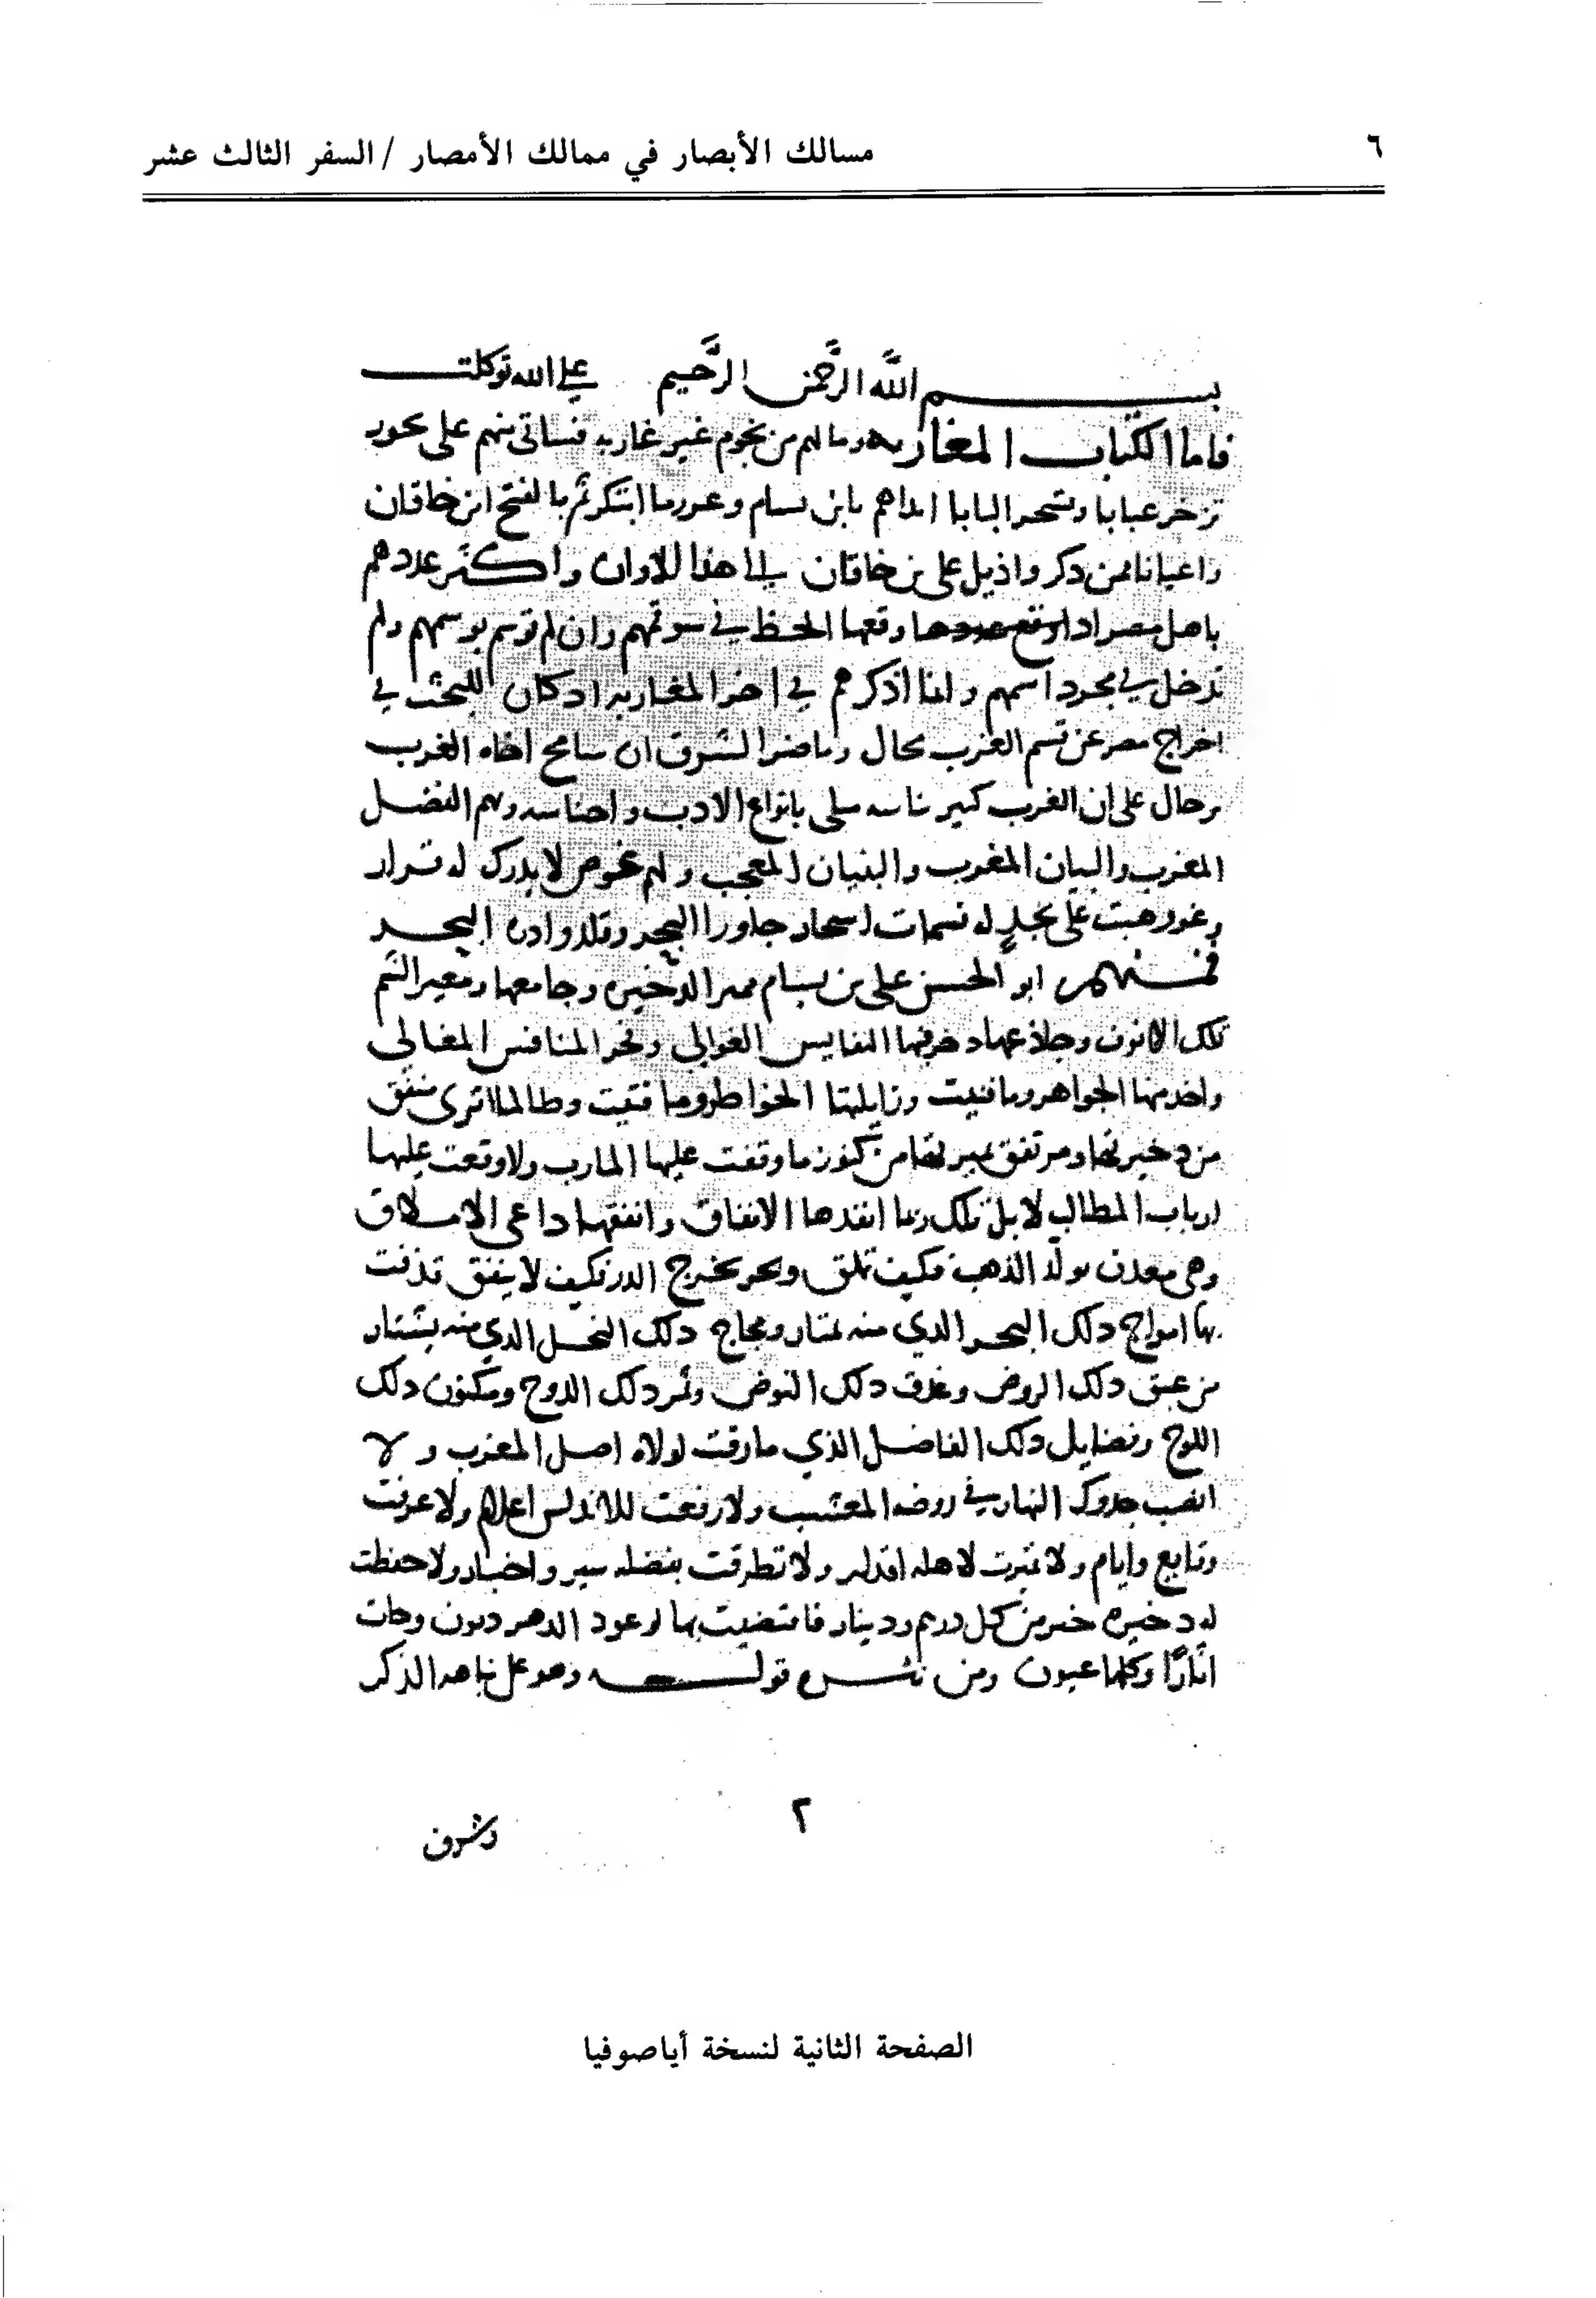 ٦
مسالك الأبصار في ممالك الأمصار / السفر الثالث عشر
بسم الله الرحمن الرحيم على الله توكلت
فاما الكتاب المغاربه وما لهم من نجوم غير غاربه فسأتى منهم على بحور
تزخر عبابا وتسحر البابا ابداهم بابن بسام وعددما ابتكر ثم بالفتح ابن خاقان
واعيانا ممن ذكر واذيل على بن خاقان الى هذا الاوان واكثر عددهم
باهل مصر اد اوقع وقعها الحظ في سوقهم وان لم توسم بوسمهم ولم
تدخل في مجرد اسمهم وانا اذكرهم في اخر المغاربه ادكان للبحث في
اخراج مصر عن قسم الغرب مجال وما ضر الشرق ان سامح اخاه الغرب
برحال على ان الغرب كبير ناسه ملى بانواع الادب واجناسه ولهم الفضل
المغرب والبيان المغرب والبنيان المعجب ولهم غوص لا يدرك له قرار
وغور هبت على نجد له نسمات اسحار جاوروا البحر وقلدوا در البحر
فمنهم ابو الحسن على بن بسام الدخيره وجامعها ومعير الشم
تلك الانوف النفايس الغوالي ونحر المنافس المغالي
واخد منها الجواهر وما فنيت وزايلتها الخواطر وما فتيت وطالما اثرى منفق
من دخيرتها ومرتفق بميرتها من كنوز ما وقفت عليها المارب ولا وقعت عليها
ارباب المطالب لا بل تلك ربما انفدها الانفاق وانفقها داعى الاملاق
وهى معدن يولد الذهب فكيف تملق وبحر يخرج الدر فكيف لا ينفق قذفت
بها امواج دلك البحر الدي منه تمتار ومجاج دلك النحل الدي منه يشتار
من عبق دلك الروض وغدق دلك النوض وثمر دلك الدوح ومكنون دلك
اللوح وفضايل دلك الفاضل الذي ما رقت لولاه اصل المغرب ولا
انصب جدول النهار في روضه المعشب ولا رفعت للاندلس اعلام ولا عرفت
وقايع وايام ولا تميزت لاهله اقدار ولا تطرقت بفضله سير واخبار ولا حفظت
له دخيره خير من كل درهم ودينار فاقتضيت بها لوعود الدهر ديون وجات
اثارا وكلها عيون ومن نثره قوله وهو على نباهه الذكر
٢
وشرف
الصفحة الثانية لنسخة أياصوفيا